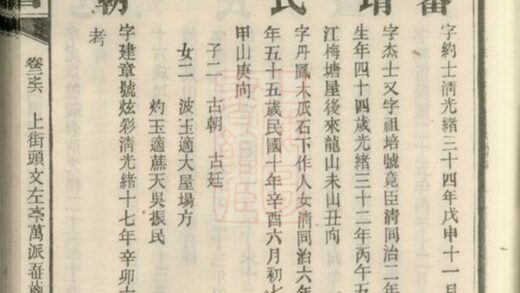 字約士清光緒三十四年戊申十一月
字杰士又字祖培號竟臣清同治二年
生年四十四歲光緒三十二年丙午五
江梅塘屋後來龍山未山丑向
字丹鳳木瓜石下作人女清同治六年
年五十五歲民國十年辛酉六月初七
甲山庚向
子二 古朝 古廷
女二 波玉適大屋場方
灼玉適蕉天吳振民
考
字建章號炫彩清光緒十七年辛卯
上街頭文左 萬派